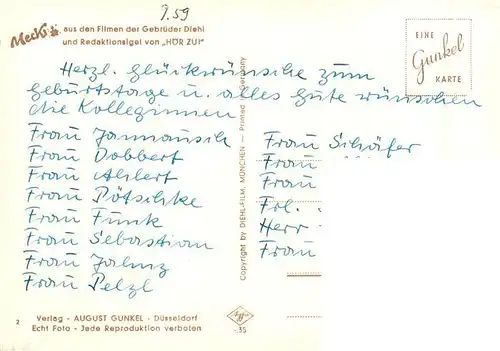 3.59
Mecki aus den Filmen der Gebrüder Diehl
und Redaktionsigel von „HÖR ZU!"
EINE
Gunkel
KARTE
Herzl. Glückwünsche zum
Geburtstage u. alles Gute wünschen
die Kolleginnen
Frau Jannausch
Frau Dobbert
Frau Ahlert
Frau Pötschke
Frau Funk
Frau Sebastian
Frau Jahnz
Frau Pelzl
Frau Schäfer
Frau
Frau
Frl.
Herr
Frau
Copyright by DIEHL-FILM, MÜNCHEN - Printed Germany
2
Verlag - AUGUST GUNKEL - Düsseldorf
Echt Foto - Jede Reproduktion verboten
Agfa
-.35